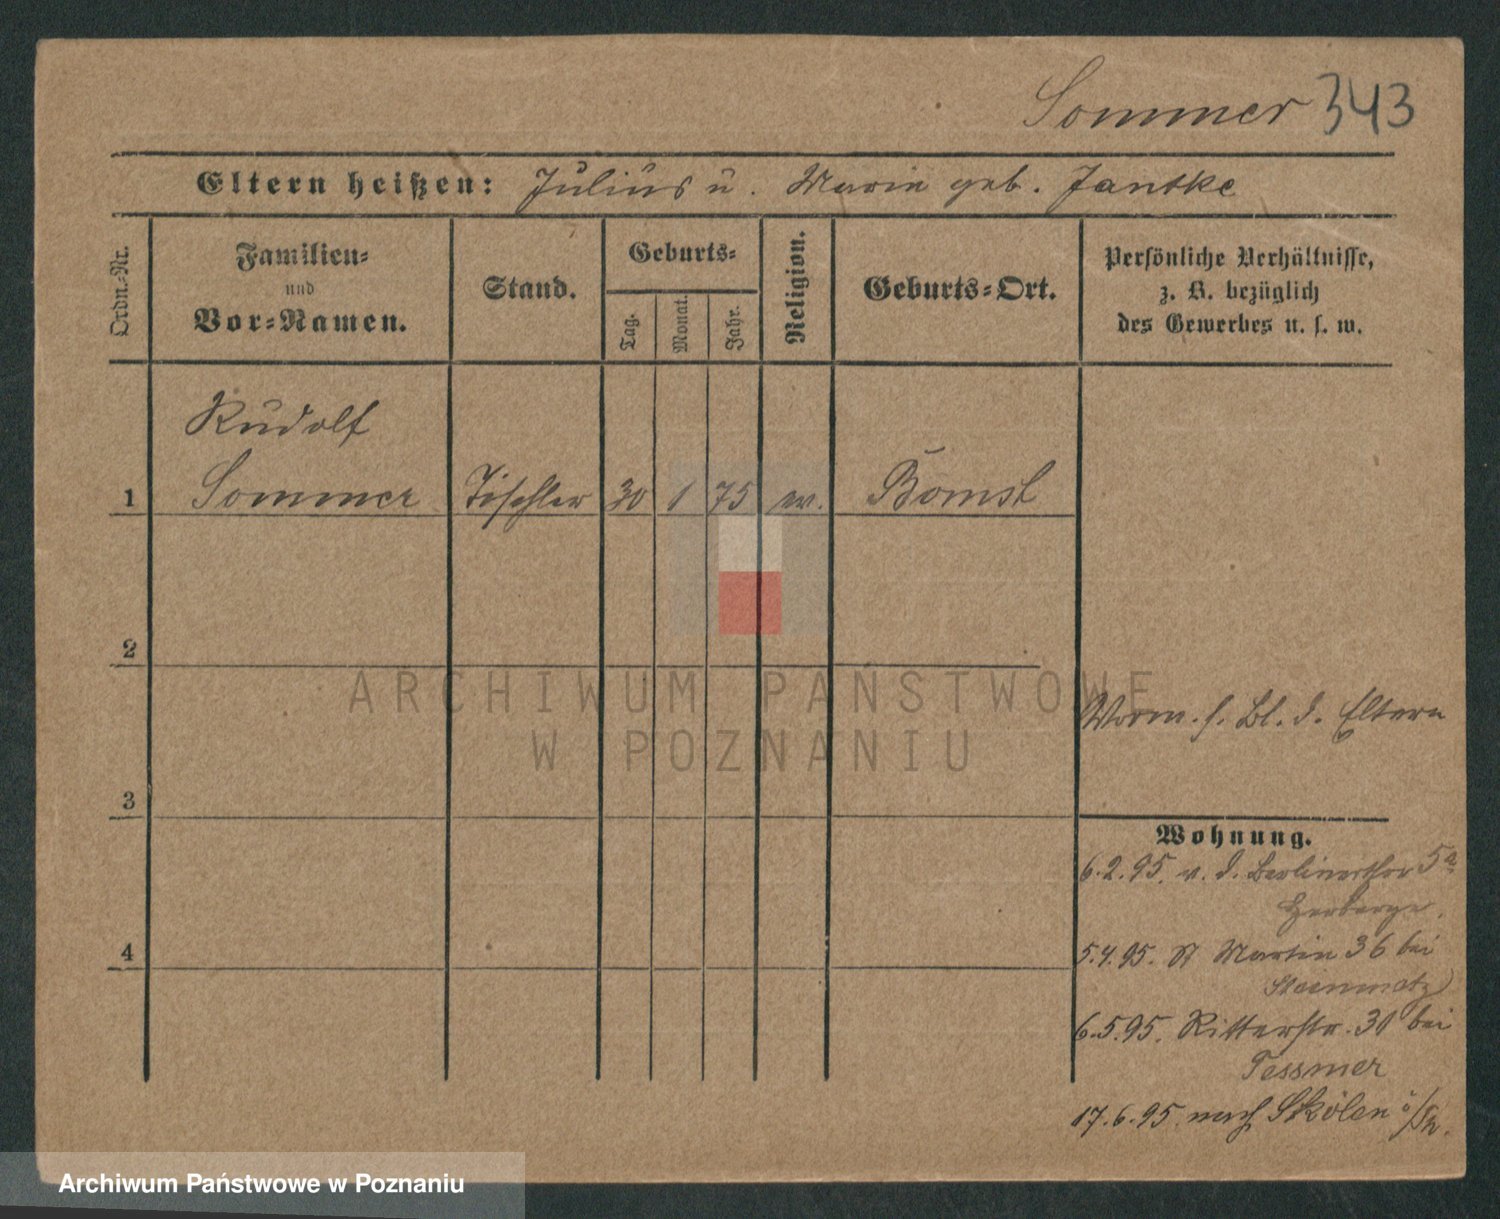 Sommer 343
Eltern heißen: Julius u. Marie geb. Jantke
Ordn.-Nr.
Familien-
und
Vor-Namen.
Stand.
Geburts-
Tag.
Monat.
Jahr.
Religion.
Geburts-Ort.
Persönliche Verhältnisse,
z. B. bezüglich
des Gewerbes u. s. w.
Rudolf
1 Sommer Tischler 30 1 75 ev. Bomst
2
ARCHIWUM PAŃSTWOWE
W POZNANIU
s. Bl. d. Eltern
3
Wohnung.
6.2.95. v. d. Berlinerthor 5a
Herberge.
4
5.4.95. St Martin 36 bei
Steinmetz
6.5.95. Ritterstr. 31 bei
Tessmer
17.6.95. nach
Archiwum Państwowe w Poznaniu